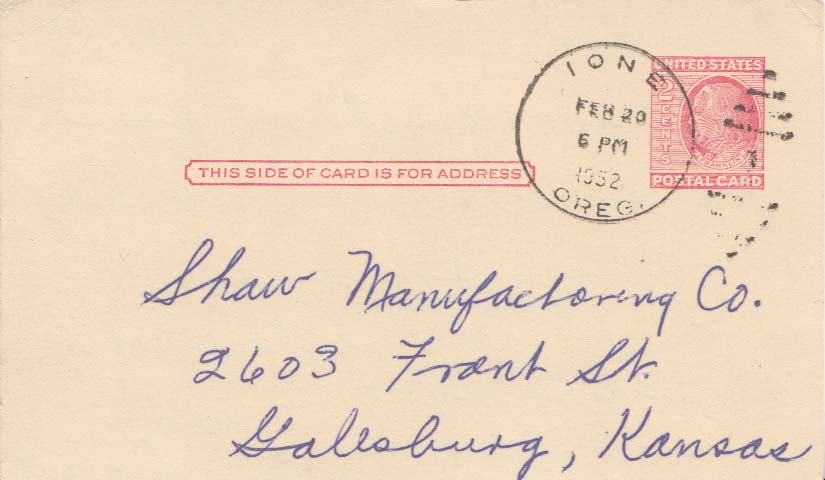 IONE
FEB 20
6 PM
1952
OREG.
UNITED STATES
2 CENTS
FRANKLIN
POSTAL CARD
THIS SIDE OF CARD IS FOR ADDRESS
Shaw Manufactoring Co.
2603 Front St.
Galesburg, Kansas